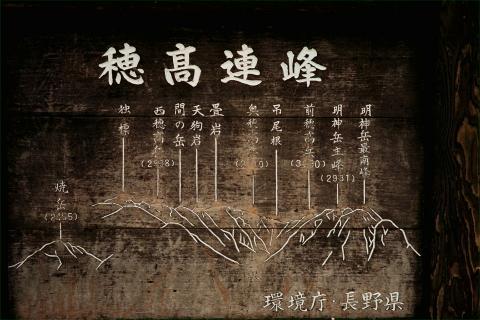 穂高連峰
独標
西穂高岳
間の岳
天狗岩
畳岩
吊尾根
前穂高岳
明神岳主峰
(2931)
明神岳最南峰
焼岳
(2455)
環境庁・長野県